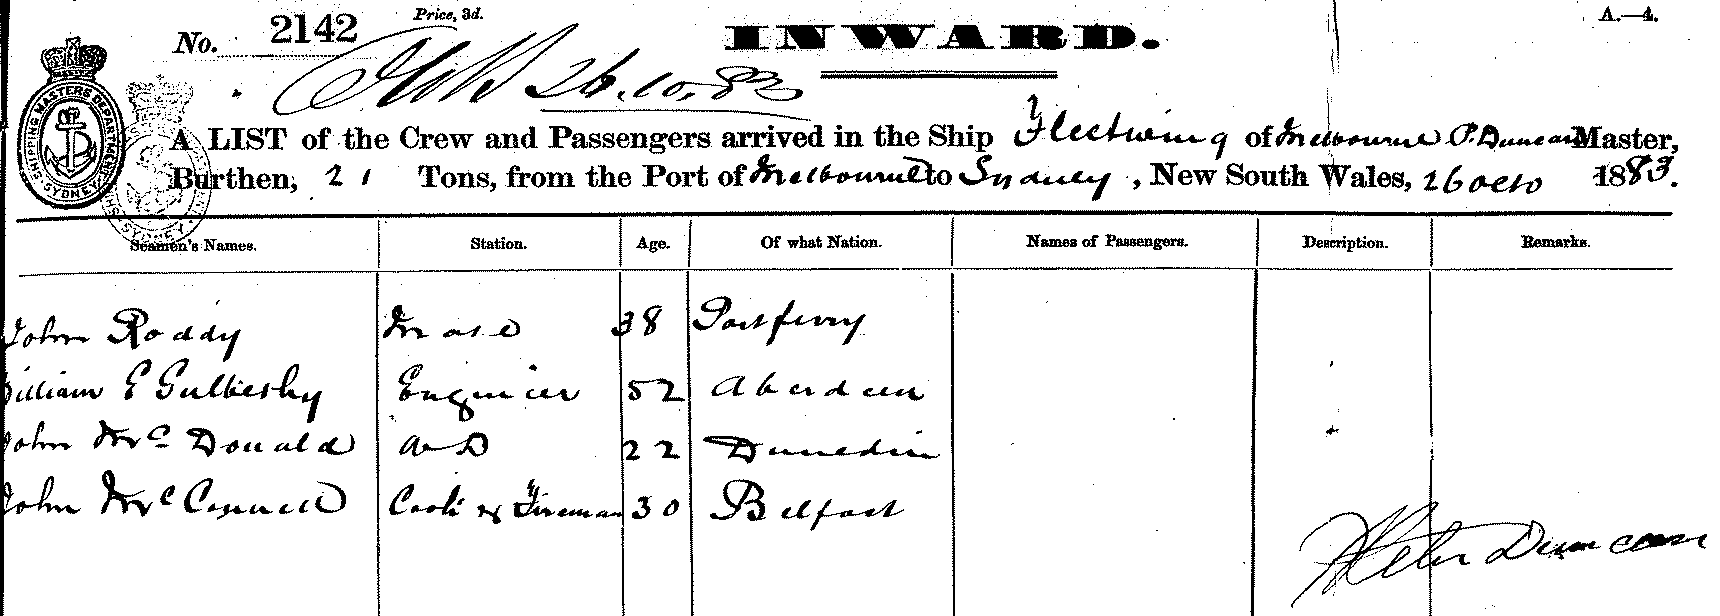 No. 2142
Price, 3d.
INWARD.
A.—4.
26.10.83
SHIPPING MASTERS DEPARTMENT SYDNEY
A LIST of the Crew and Passengers arrived in the Ship Fleetwing of Melbourne P. Duncan Master,
Burthen, 21 Tons, from the Port of Melbourne to Sydney, New South Wales, 26 Octo 1883.
Seamen's Names. Station. Age. Of what Nation. Names of Passengers. Description. Remarks.
John Roddy Mate 38 Portferry
William E Aberdeen Engineer 52
John McDonald AB 22 Dunedin
John McConnell Cook & Fireman 30 Belfast
Peter Duncan